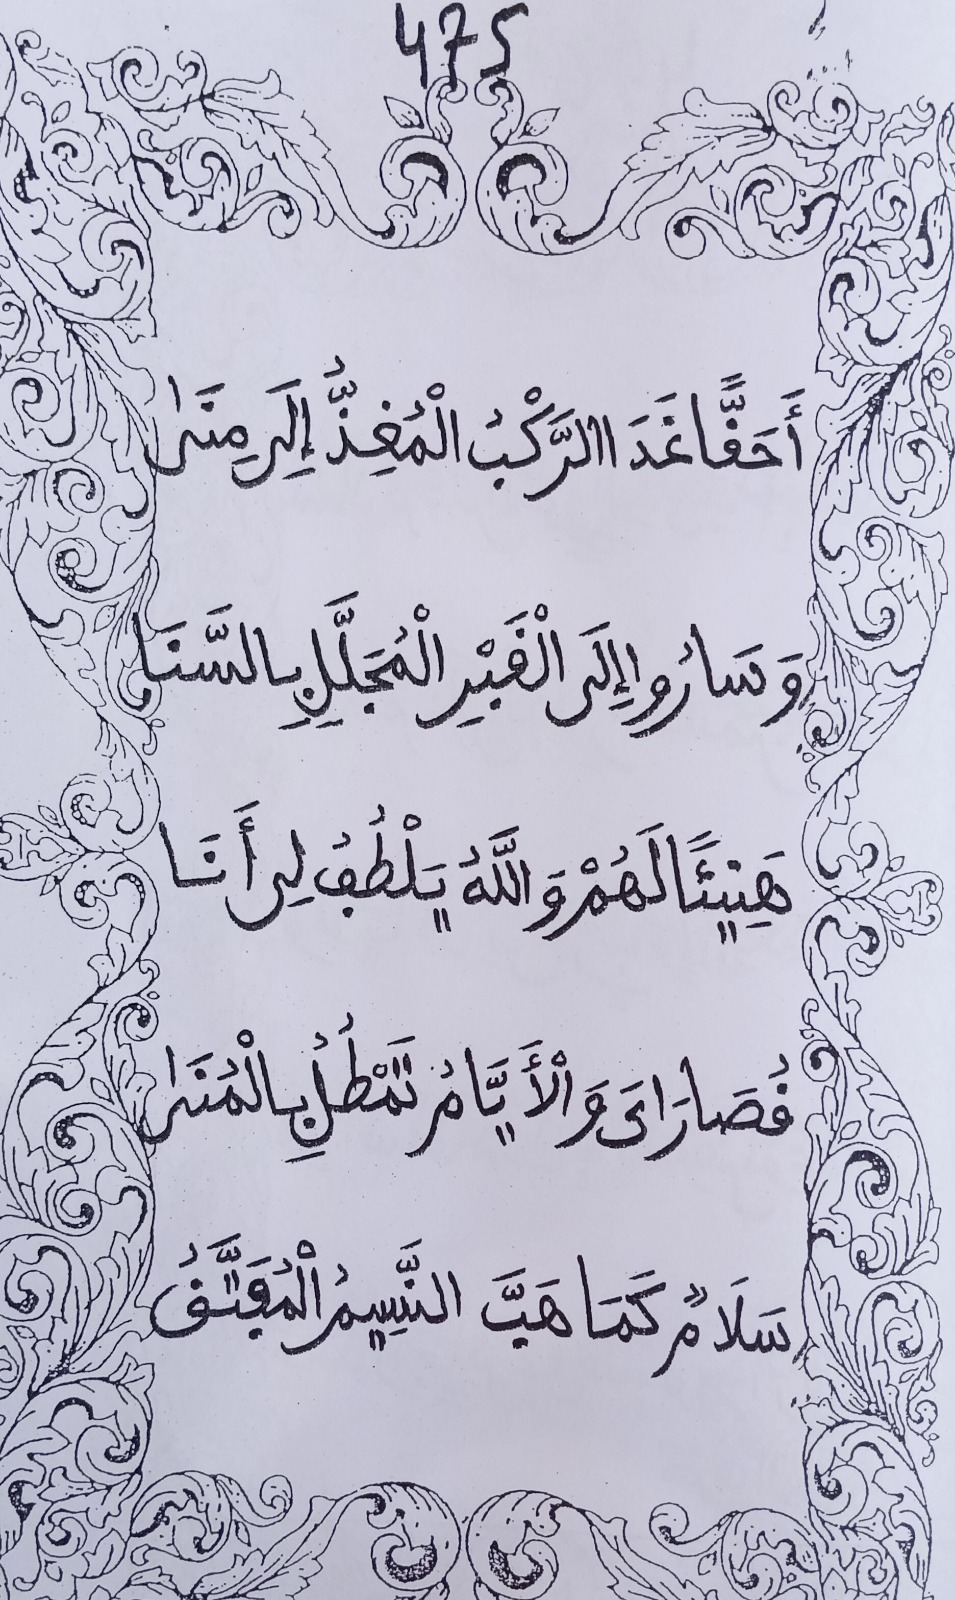 475
أَحَقًّا غَدَا الرَّكْبُ الْمُغِذُّ إِلَى مِنَى
وَسَارُوا إِلَى الْقَبْرِ الْمُجَلَّلِ بِالسَّنَا
هَنِيئًا لَهُمْ وَاللَّهُ يَلْطُفُ لِي أَنَا
قُصَارَايَ وَالْأَيَّامُ تَمْطُلُ بِالْمُنَى
سَلَامٌ كَمَا هَبَّ النَّسِيمُ الْمُفَتَّقُ